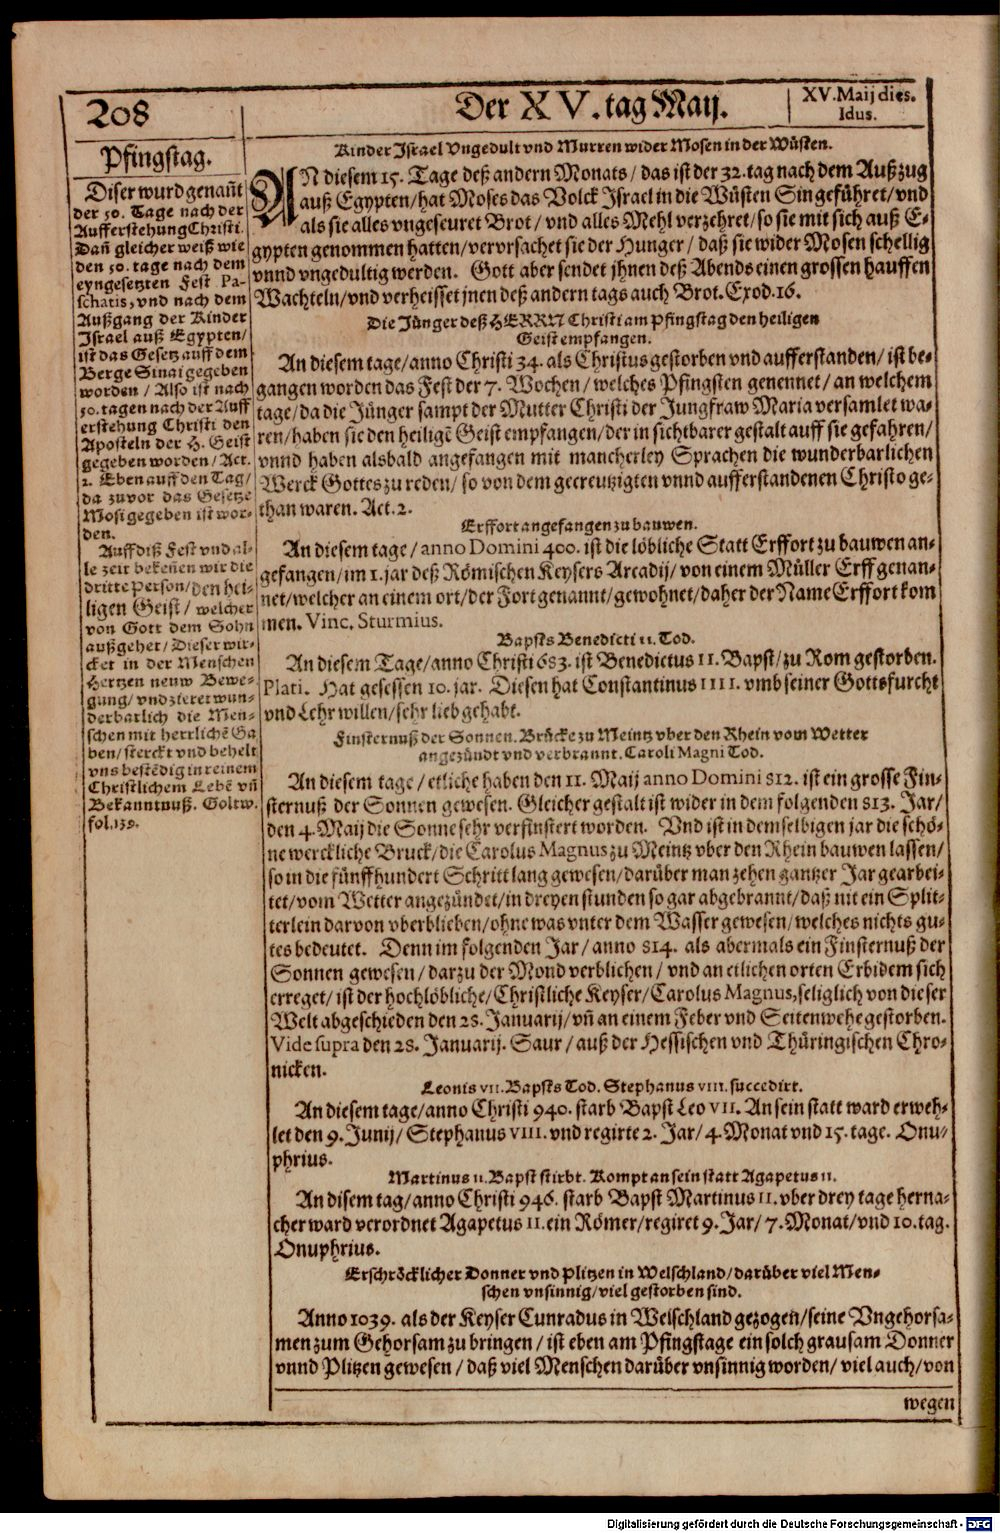 208
Der XV. tag Maij.
XV. Maij dies.
Idus.
Pfingstag.
Diser wurd genañt
der 50. Tage nach der
Aufferstehung Christi.
Dañ gleicher weiß wie
den 50. tage nach dem
eyngesetzten Fest Pa-
schatis, vnd nach dem
Außgang der Kinder
Israel auß Egypten/
ist das Gesetz auff dem
Berge Sinai gegeben
worden / Also ist nach
50. tagen nach der Auff
erstehung Christi den
Aposteln der H. Geist
gegeben worden / Act.
2. Eben auff den Tag/
da zuvor das Gesetze
Mosi gegeben ist wor-
den.
Auff diß Fest vnd al-
le zeit bekeñen wir die
dritte Person/den hei-
ligen Geist / welcher
von Gott dem Sohn
außgehet / Dieser wir-
cket in der Menschen
Hertzen neuw Bewe-
gung / vnd zieret wun-
derbarlich die Men-
schen mit herrlichē Ga
ben / sterckt vnd behelt
vns bestēdig in reinem
Christlichem Lebē vñ
Bekanntnuß. Goltw.
fol. 139.
Kinder Israel Vngedult vnd Murren wider Mosen in der Wüsten.
AN diesem 15. Tage deß andern Monats / das ist der 32. tag nach dem Außzug
auß Egypten / hat Moses das Volck Israel in die Wüsten Sin geführet / vnd
als sie alles vngeseuret Brot / vnd alles Mehl verzehret / so sie mit sich auß E-
gypten genommen hatten / vervrsachet sie der Hunger / daß sie wider Mosen schellig
vnnd vngedultig werden. Gott aber sendet jhnen deß Abends einen grossen hauffen
Wachteln / vnd verheisset jnen deß andern tags auch Brot. Exod. 16.
Die Jünger deß HERRN Christi am Pfingstag den heiligen
Geist empfangen.
An diesem tage / anno Christi 34. als Christus gestorben vnd aufferstanden / ist be-
gangen worden das Fest der 7. Wochen / welches Pfingsten genennet / an welchem
tage / da die Jünger sampt der Mutter Christi der Jungfraw Maria versamlet wa-
ren / haben sie den heiligē Geist empfangen / der in sichtbarer gestalt auff sie gefahren /
vnnd haben alsbald angefangen mit mancherley Sprachen die wunderbarlichen
Werck Gottes zu reden / so von dem gecreutzigten vnnd aufferstandenen Christo ge-
than waren. Act. 2.
Erffort angefangen zu bauwen.
An diesem tage / anno Domini 400. ist die löbliche Statt Erffort zu bauwen an-
gefangen / im 1. jar deß Römischen Keysers Arcadij / von einem Müller Erff genan-
net / welcher an einem ort / der Fort genannt / gewohnet / daher der Name Erffort kom
men. Vinc. Sturmius.
Bapsts Benedicti 11. Tod.
An diesem Tage / anno Christi 683. ist Benedictus II. Bapst / zu Rom gestorben.
Plati. Hat gesessen 10. jar. Diesen hat Constantinus IIII. vmb seiner Gottsfurcht
vnd Lehr willen / sehr lieb gehabt.
Finsternuß der Sonnen. Brücke zu Meintz vber den Rhein vom Wetter
angezündt vnd verbrannt. Caroli Magni Tod.
An diesem tage / etliche haben den 11. Maij anno Domini 812. ist ein grosse Fin-
sternuß der Sonnen gewesen. Gleicher gestalt ist wider in dem folgenden 813. Jar /
den 4. Maij die Sonne sehr verfinstert worden. Vnd ist in demselbigen jar die schö-
ne werckliche Bruck / die Carolus Magnus zu Meintz vber den Rhein bauwen lassen /
so in die fünffhundert Schritt lang gewesen / darüber man zehen gantzer Jar gearbei-
tet / vom Wetter angezündet / in dreyen stunden so gar abgebrannt / daß nit ein Split-
terlein darvon vberblieben / ohne was vnter dem Wasser gewesen / welches nichts gu-
tes bedeutet. Denn im folgenden Jar / anno 814. als abermals ein Finsternuß der
Sonnen gewesen / darzu der Mond verblichen / vnd an etlichen orten Erbidem sich
erreget / ist der hochlöbliche / Christliche Keyser / Carolus Magnus, seliglich von dieser
Welt abgeschieden den 28. Januarij / vñ an einem Feber vnd Seitenwehe gestorben.
Vide supra den 28. Januarij. Saur / auß der Hessischen vnd Thüringischen Chro-
nicken.
Leonis VII. Bapsts Tod. Stephanus VIII. succedirt.
An diesem tage / anno Christi 940. starb Bapst Leo VII. An sein statt ward erweh-
let den 9. Junij / Stephanus VIII. vnd regirte 2. Jar / 4. Monat vnd 15. tage. Onu-
phrius.
Martinus II. Bapst stirbt. Kompt an sein statt Agapetus II.
An disem tag / anno Christi 946. starb Bapst Martinus II. vber drey tage herna-
cher ward verordnet Agapetus II. ein Römer / regiret 9. Jar / 7. Monat / vnd 10. tag.
Onuphrius.
Erschröcklicher Donner vnd Plitzen in Welschland / darüber viel Men-
schen vnsinnig / viel gestorben sind.
Anno 1039. als der Keyser Cunradus in Welschland gezogen / seine Vngehorsa-
men zum Gehorsam zu bringen / ist eben am Pfingstage ein solch grausam Donner
vnnd Plitzen gewesen / daß viel Menschen darüber vnsinnig worden / viel auch / von
wegen
Digitalisierung gefördert durch die Deutsche Forschungsgemeinschaft - DFG